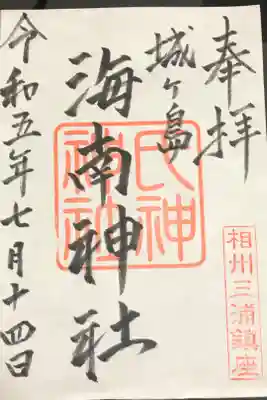 奉拝
城ヶ島
海南神社
氏神
神社
相州三浦鎮座
令和五年七月十四日